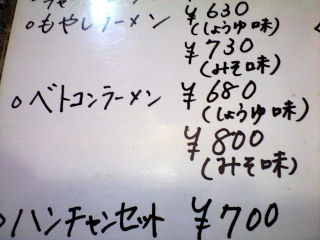 ○もやしラーメン ¥630
(しょうゆ味)
¥730
(みそ味)
○ベトコンラーメン ¥680
(しょうゆ味)
¥800
(みそ味)
○ハンチャンセット ¥700